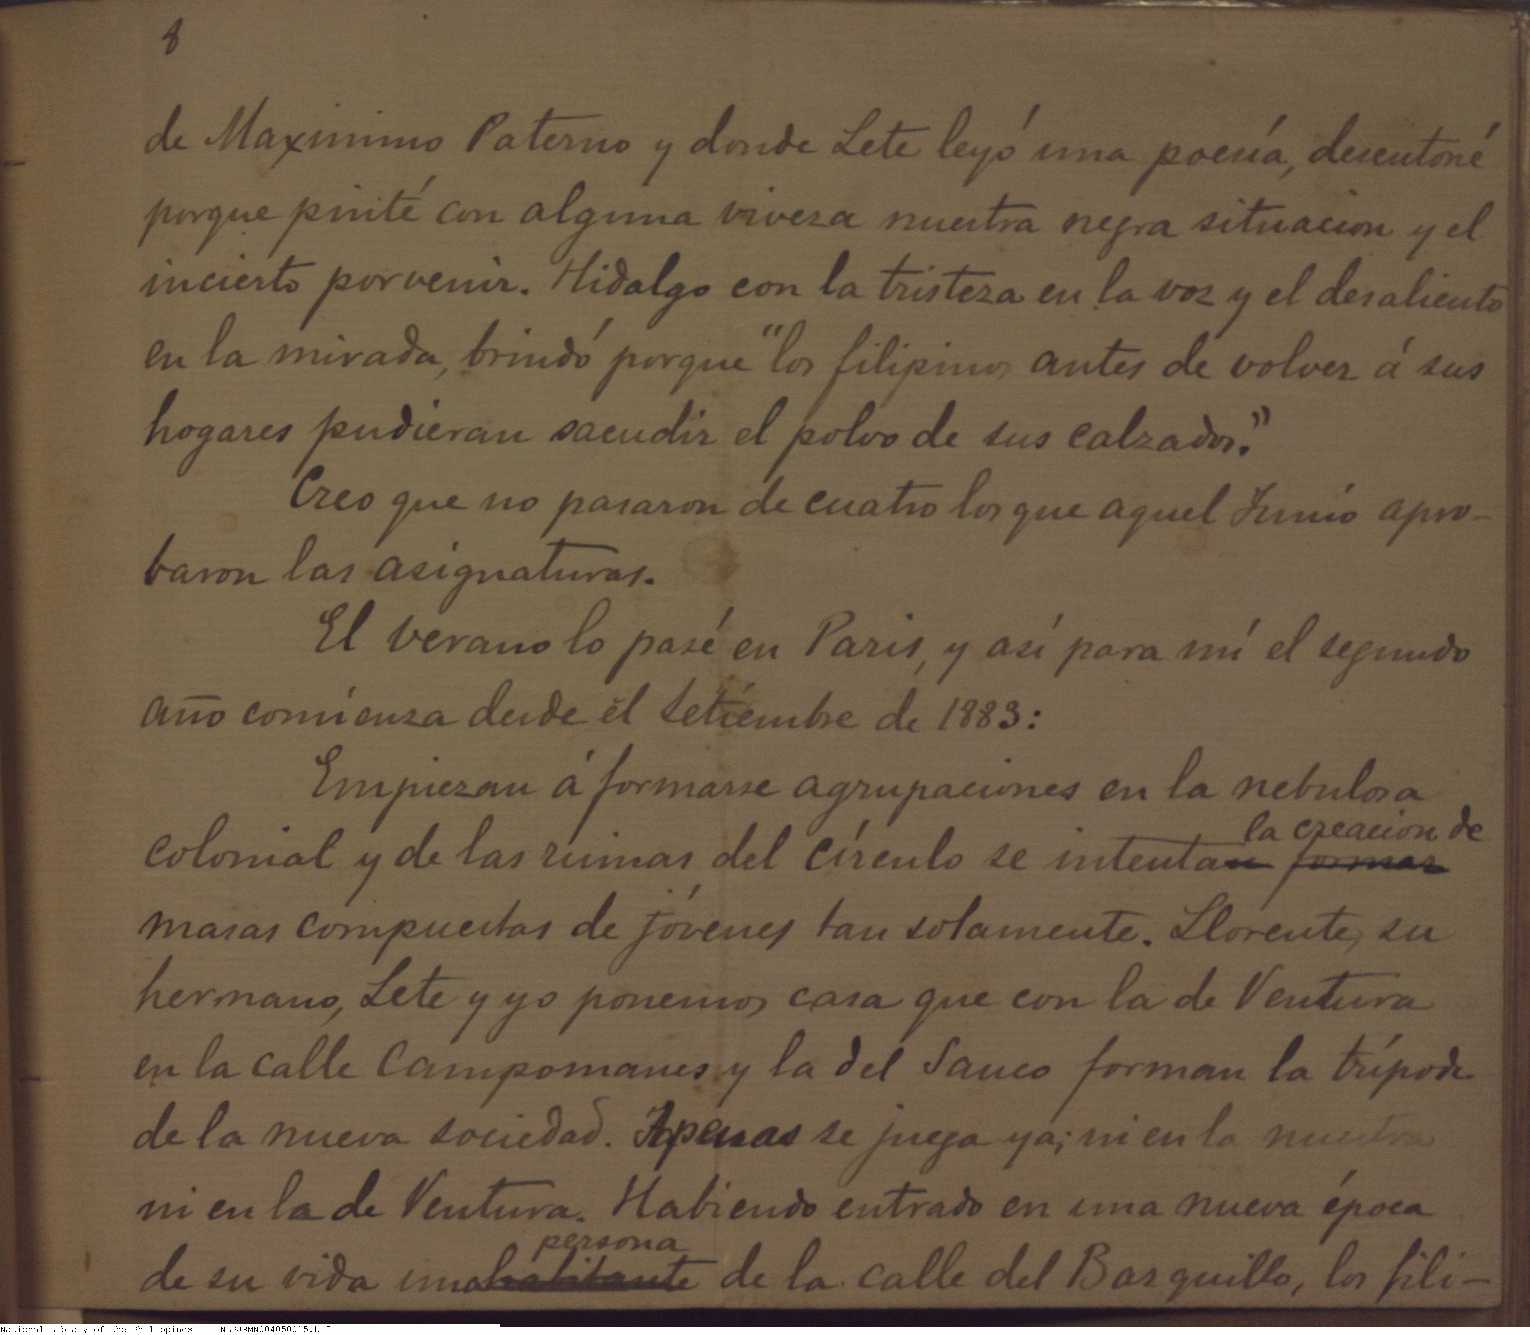 8
de Maximino Paterno y donde Lete leyó una poesía, desentoné
porque pinté con alguna viveza nuestra negra situacion y el
incierto porvenir. Hidalgo con la tristeza en la voz y el desaliento
en la mirada, brindó porque "los filipinos antes de volver á sus
hogares pudieran sacudir el polvo de sus calzados."
Creo que no pasaron de cuatro los que aquel Junio apro-
baron las asignaturas.
El verano lo pasé en Paris, y así para mí el segundo
año comienza desde el Setiembre de 1883:
Empiezan á formarse agrupaciones en la nebulosa
la creacion de
colonial y de las ruinas del círculo se intentan formar
masas compuestas de jóvenes tan solamente. Llorente, su
hermano, Lete y yo ponemos casa que con la de Ventura
en la calle Campomanes y la del Sauco forman la trípode
de la nueva sociedad. Apenas se juega ya; ni en la nuestra
ni en la de Ventura. Habiendo entrado en una nueva época
persona
de su vida una habitante de la calle del Barquillo, los fili-
National Library of the Philippines